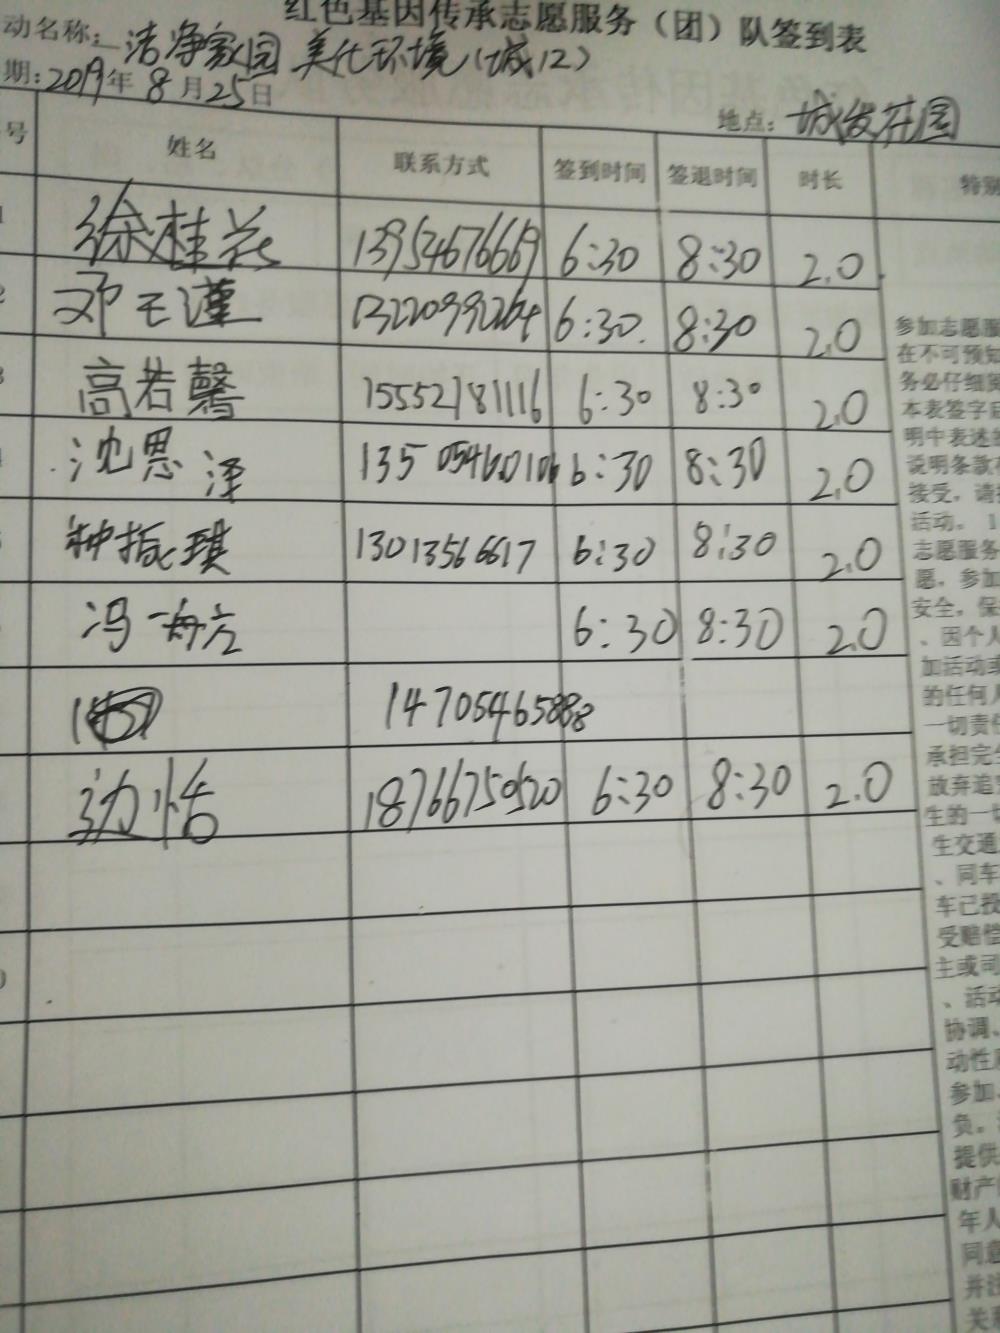 红色基因传承志愿服务（团）队签到表
动名称：洁净家园 美化环境（城12）
期：2019年8月25日
地点：城发花园
号 姓名 联系方式 签到时间 签退时间 时长 特别
徐桂花 13954676669 6:30 8:30 2.0
邓王瑾 13220990264 6:30. 8:30 2.0
高若馨 15552181116 6:30 8:30 2.0
沈思泽 6:30 8:30 2.0
种振琪 13013566617 6:30 8:30 2.0
冯 6:30 8:30 2.0
14705465888
边恬 18766750520 6:30 8:30 2.0
参加志愿服
在不可预知
务必仔细阅
本表签字后
明中表述的
说明条款
接受，请
活动。1
志愿服务
愿，参加
安全，保
、因个人
加活动或
的任何人
一切责任
承担完全
放弃追究
生的一切
生交通
、同车
车已投
受赔偿
主或司
、活动
协调、
动性
参加
负。
提供
财产
年人
同意
并注
关